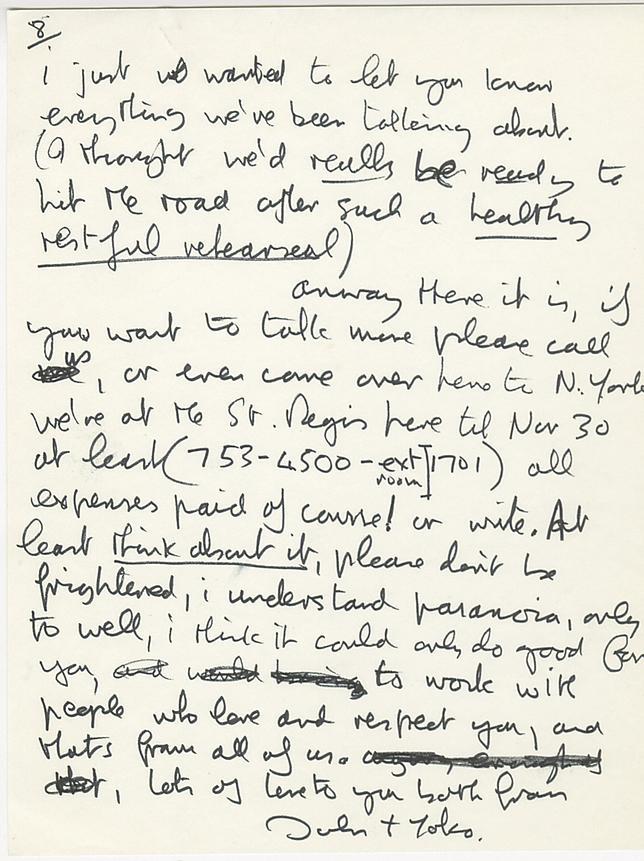 8
i just wanted to let you know
everything we've been talking about.
(I thought we'd really be ready to
hit the road after such a healthy
restful rehearsal)
anyway there it is, if
you want to talk more please call
us, or even come over here to N. York
we're at the St. Regis here til Nov 30
at least (753-4500-ext room 1701) all
expenses paid of course! or write. At
least think about it, please don't be
frightened, i understand paranoia, only
to well, i think it could only do good for
you, to work with
people who love and respect you, and
that's from all of us.
lots of love to you both from
John + Yoko.